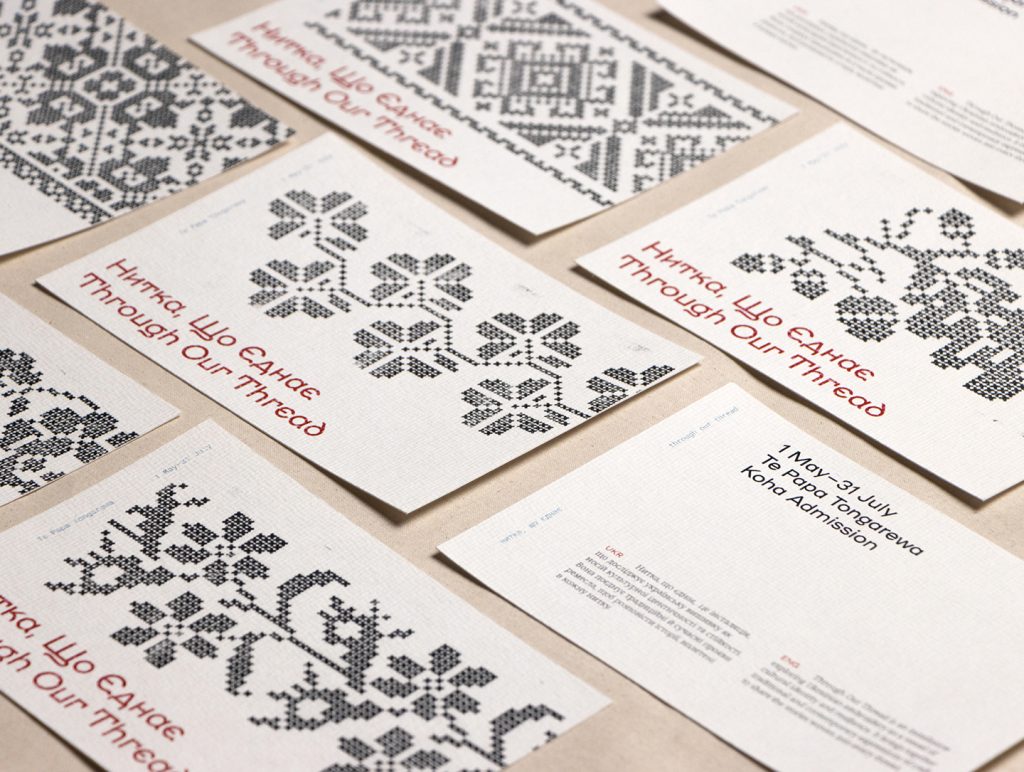 Нитка, Що Єднає
Through Our Thread
Te Papa Tongarewa
Нитка, Що Єднає
Through Our Thread
Te Papa Tongarewa
Нитка, Що Єднає
Through Our Thread
Te Papa Tongarewa
1 May–31 July
тка, Що Єднає
ugh Our Thread
through our thread
нитка, що єднає
1 May–31 July
Te Papa Tongarewa
Koha Admission
UKR
Нитка, що єднає, це виставка,
що досліджує українську вишивку як
носій культурної ідентичності та стійкості.
Вона поєднує традиційні й сучасні прояви
ремесла, щоб розповісти історії, вплетені
в кожну нитку
ENG
Through Our Thread is an
exploring Ukrainian embroidery as a
cultural identity and resilience. It brings
traditional and contemporary
to share the stories